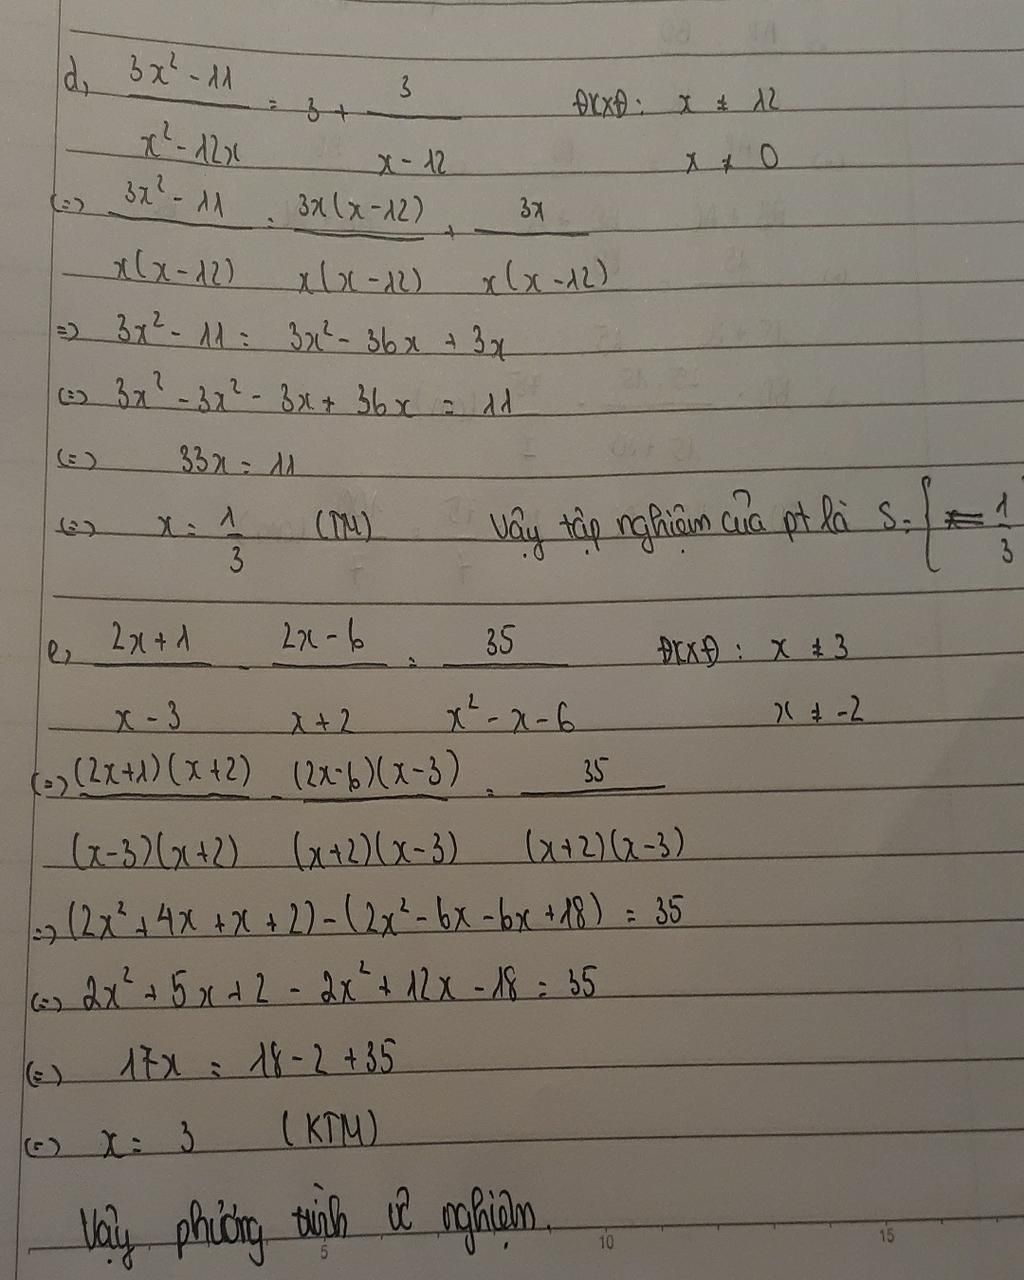 d, 3x² - 11 / x² - 12x = 3 + 3 / x - 12 ĐKXĐ: x ≠ 12
x ≠ 0
(=) 3x² - 11 / x(x-12) = 3x(x-12) / x(x-12) + 3x / x(x-12)
=) 3x² - 11 = 3x² - 36x + 3x
(=) 3x² - 3x² - 3x + 36x = 11
(=) 33x = 11
(=) x = 1/3 (TM) Vậy tập nghiệm của pt là S = { 1/3
e, 2x+1 / x-3 - 2x-6 / x+2 = 35 / x² - x - 6 ĐKXĐ: x ≠ 3
x ≠ -2
(=) (2x+1)(x+2) / (x-3)(x+2) - (2x-6)(x-3) / (x+2)(x-3) = 35 / (x+2)(x-3)
=) (2x² + 4x + x + 2) - (2x² - 6x - 6x + 18) = 35
(=) 2x² + 5x + 2 - 2x² + 12x - 18 = 35
(=) 17x = 18 - 2 + 35
(=) x = 3 (KTM)
Vậy phương trình vô nghiệm.
5 10 15